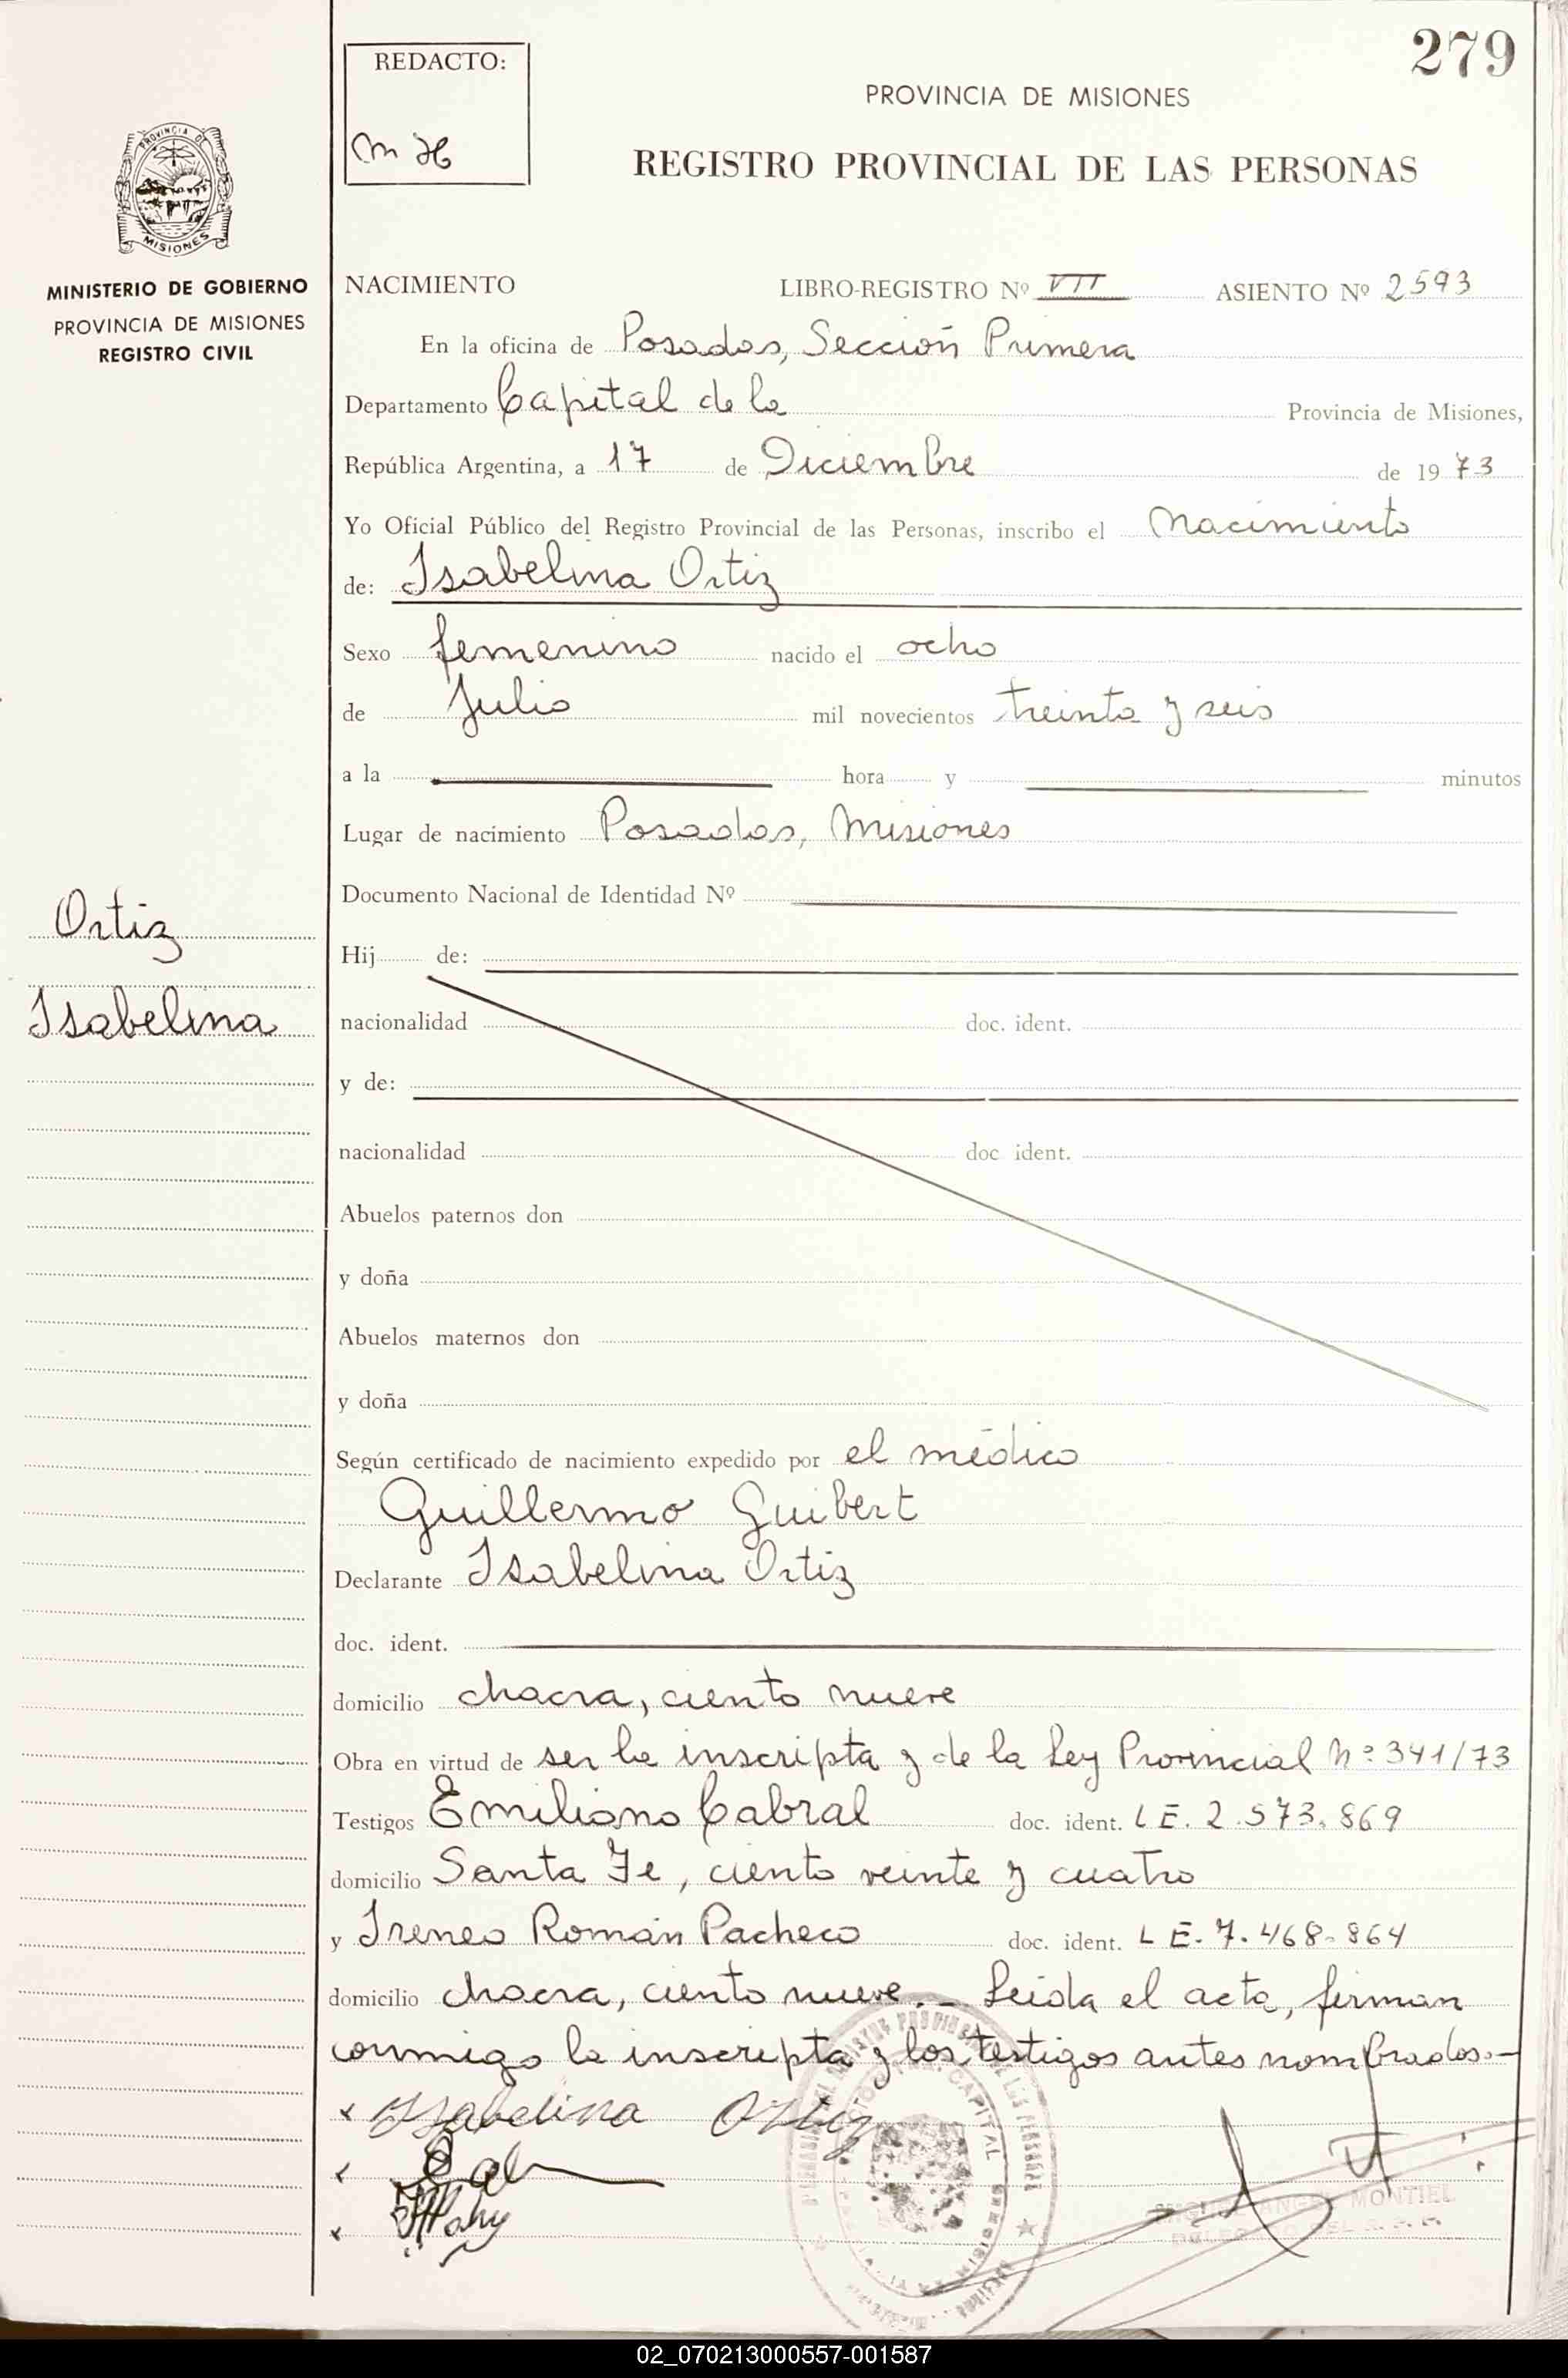 279
REDACTO:
PROVINCIA DE MISIONES
REGISTRO PROVINCIAL DE LAS PERSONAS
PROVINCIA DE
MISIONES
MINISTERIO DE GOBIERNO
PROVINCIA DE MISIONES
REGISTRO CIVIL
NACIMIENTO LIBRO-REGISTRO Nº VII ASIENTO Nº 2593
En la oficina de Posadas, Sección Primera
Departamento Capital de la Provincia de Misiones,
República Argentina, a 17 de Diciembre de 1973
Yo Oficial Público del Registro Provincial de las Personas, inscribo el Nacimiento
de: Isabelina Ortiz
Sexo femenino nacido el ocho
de Julio mil novecientos treinta y seis
a la hora y minutos
Lugar de nacimiento Posadas, Misiones
Documento Nacional de Identidad Nº
Ortiz
Isabelina
Hij de:
nacionalidad doc. ident.
y de:
nacionalidad doc ident.
Abuelos paternos don
y doña
Abuelos maternos don
y doña
Según certificado de nacimiento expedido por el médico
Guillermo Guibert
Declarante Isabelina Ortiz
doc. ident.
domicilio chacra, ciento nueve
Obra en virtud de ser la inscripta y de la Ley Provincial Nº 341/73
Testigos Emiliano Cabral doc. ident. LE. 2.573.869
domicilio Santa Fe, ciento veinte y cuatro
y Ireneo Román Pacheco doc. ident. LE. 7.468.864
domicilio chacra, ciento nueve.- Leída el acta, firman
conmigo la inscripta y los testigos antes nombrados.-
x Isabelina Ortiz
MIGUEL ANGEL MONTIEL
02_070213000557-001587